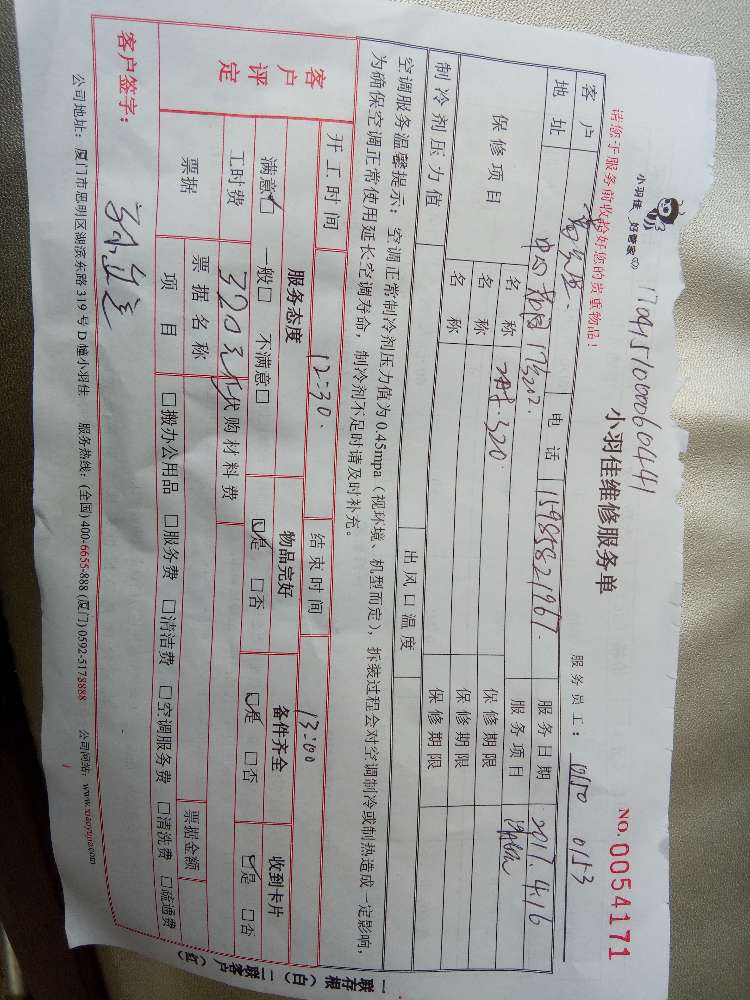 小羽佳 好管家
17041510000060441
小羽佳维修服务单
NO.0054171
请您于服务前收捡好您的贵重物品！
服务员工： 0150 0153
客户 电话 15985821967. 服务日期 2017.4.16
地址 17 202. 服务项目
保修项目 名称 320. 保修期限
名称 保修期限
名称 保修期限
制冷剂压力值 出风口温度
空调服务温馨提示：空调正常制冷剂压力值为0.45mpa（视环境、机型而定），拆装过程会对空调制冷或制热造成一定影响，
为确保空调正常使用延长空调寿命，制冷剂不足时请及时补充。
开工时间 12:30. 结束时间 13:00
客户评定 服务态度 物品完好 备件齐全 收到卡片
满意☑ 一般□ 不满意□ ☑是 □否 ☑是 □否 ☑是 □否
工时费 320元 代购材料费
票据 票据名称 票据金额
项目 □搬办公用品 □服务费 □清洁费 □空调服务费 □清洗费 □疏通费
客户签字：
公司地址：厦门市思明区湖滨东路319号D幢小羽佳 服务热线：(全国)400-6655-888 (厦门)0592-5178888 公司网站：www.xiaoyujia.com
一联存根（白）二联客户（红）